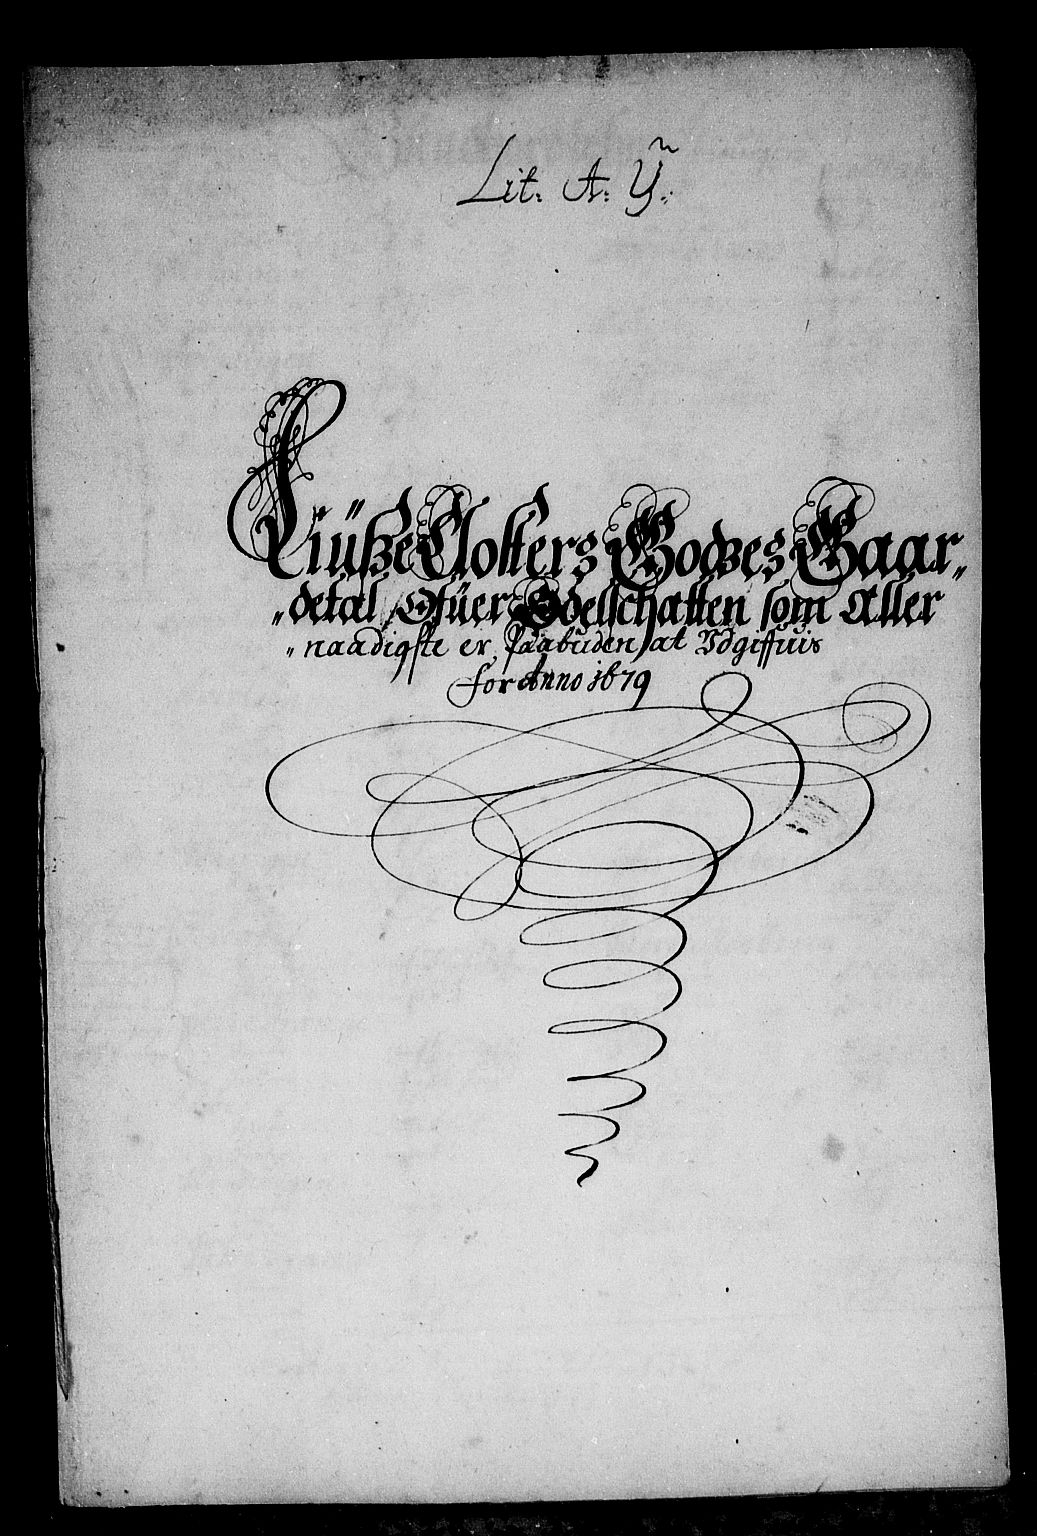 Lit. A. Ÿ.
Liüße Closters Godzes Gaar„
„detal Ofüer Odelschatten som Aller
„naadigste er Paabuden at Vdgiffuis
for Anno 1679